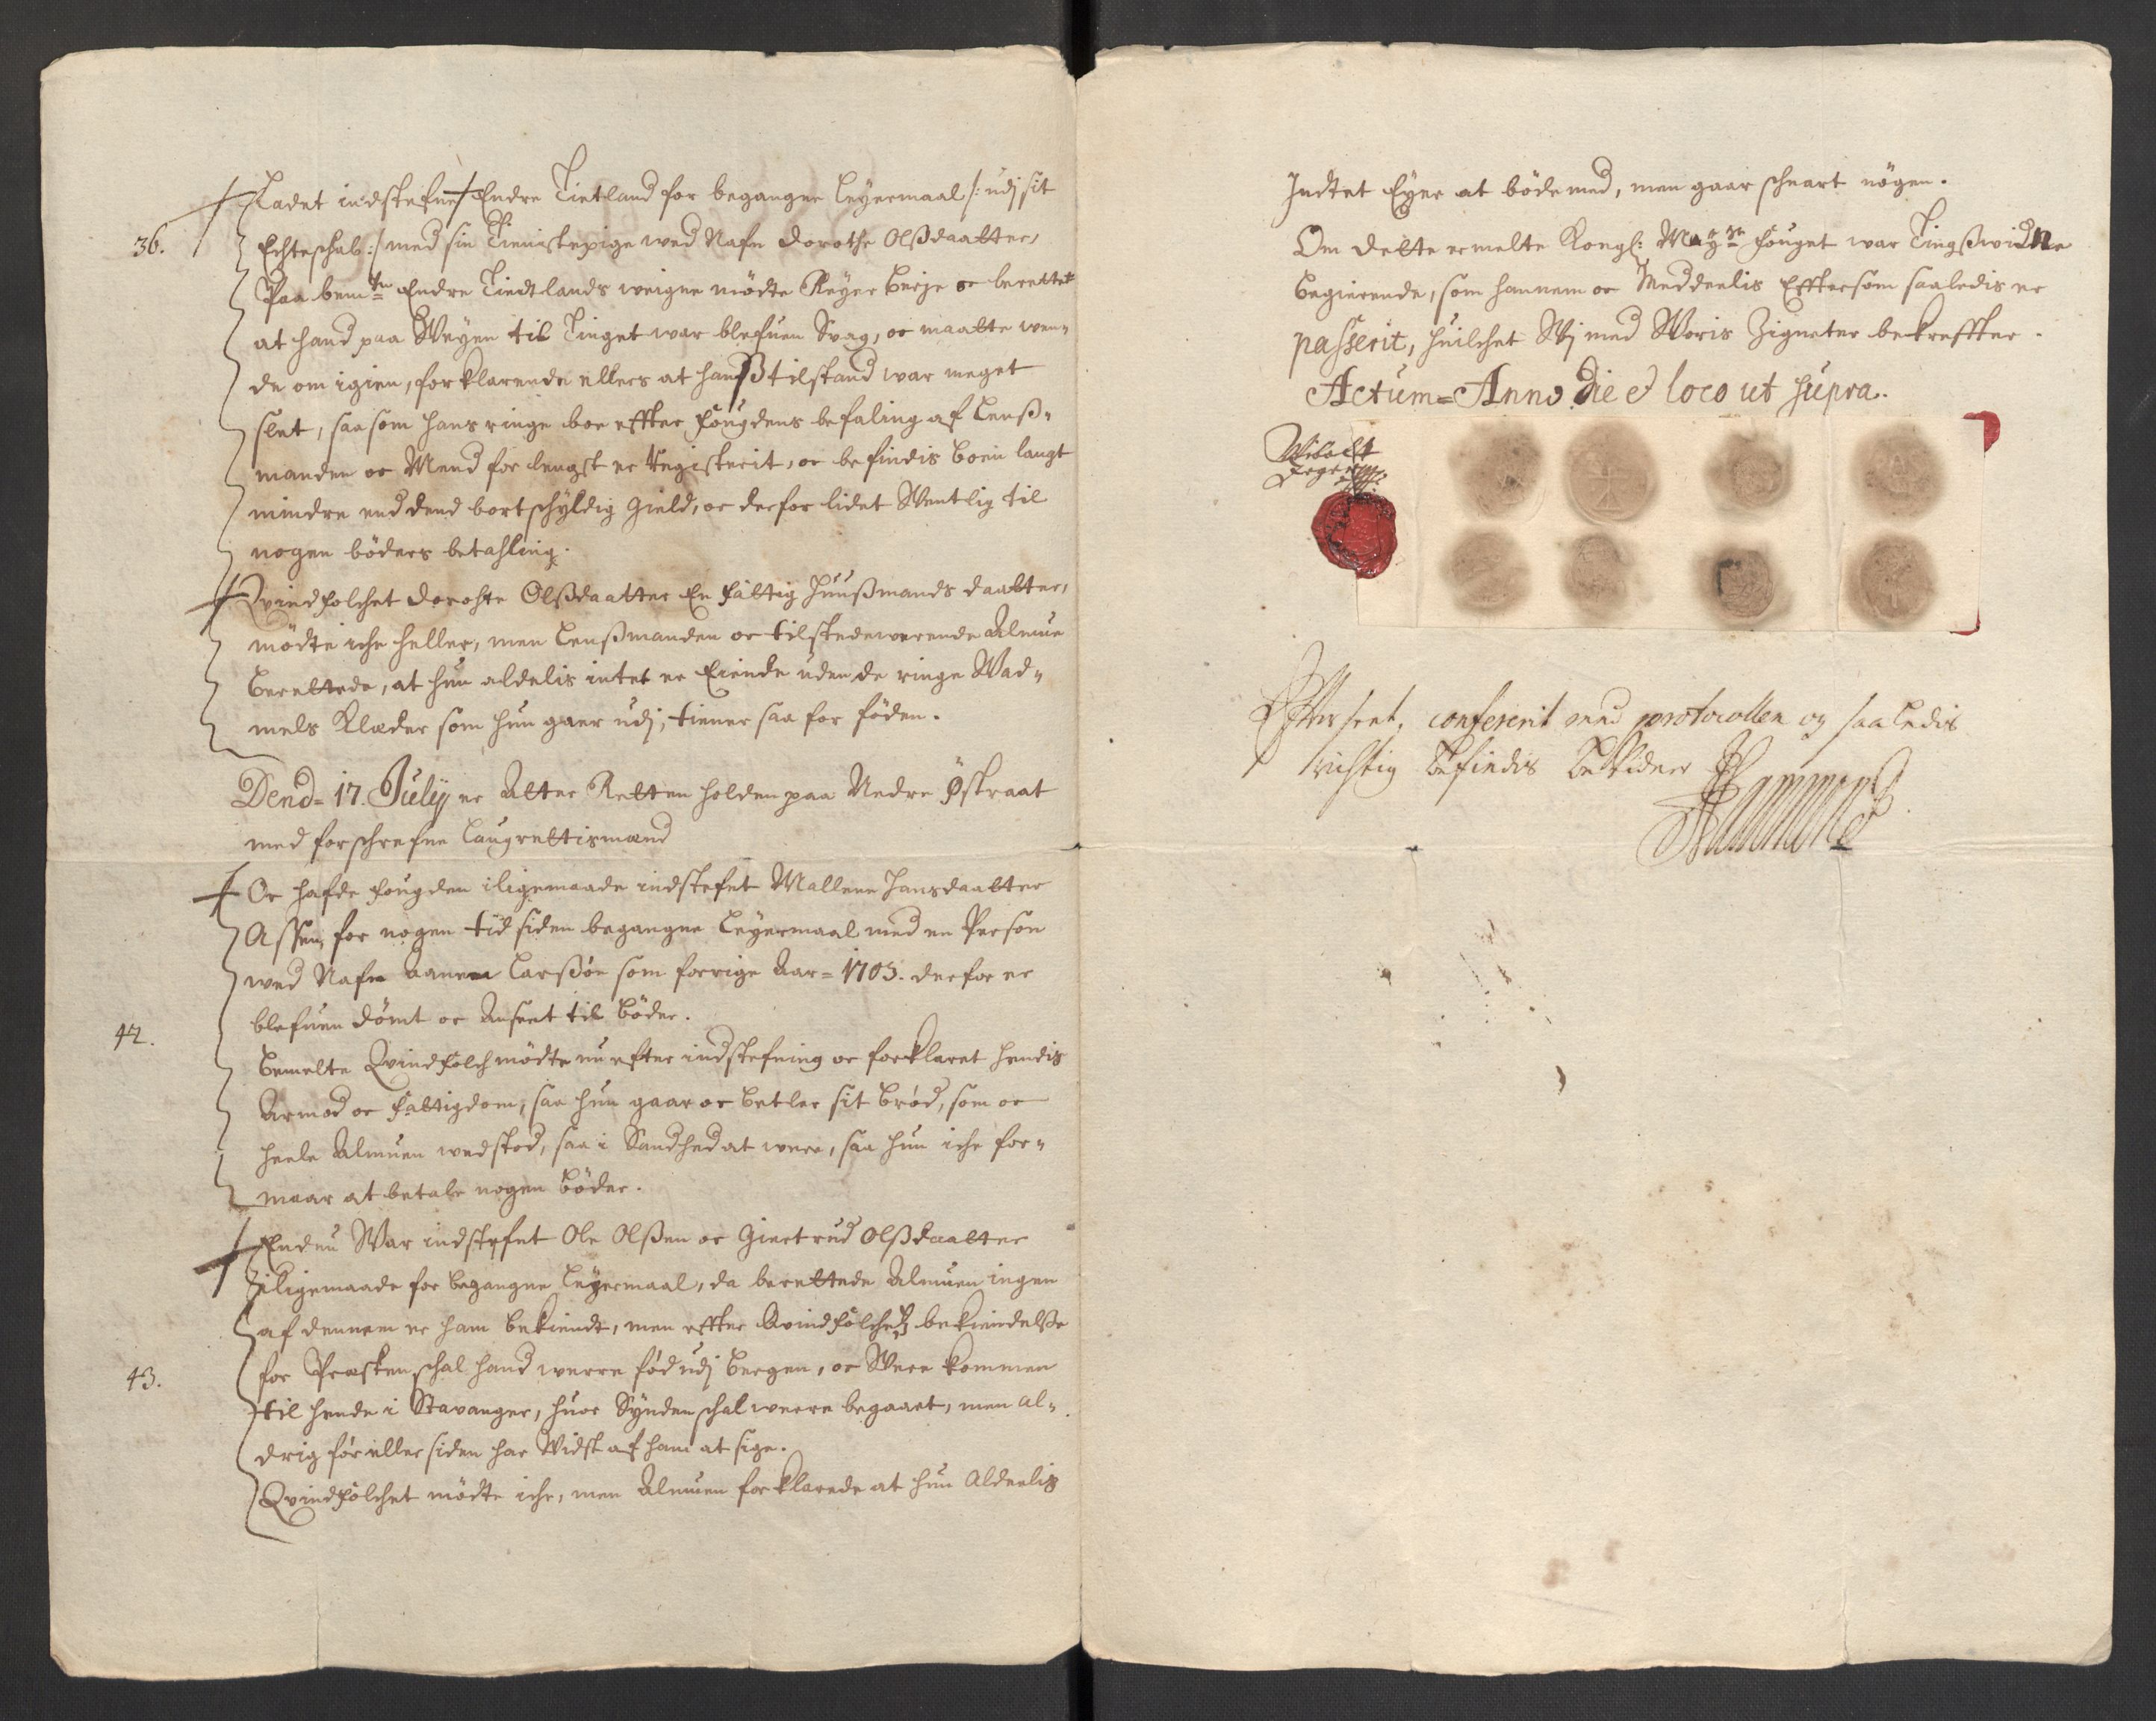 Ladet indstefne Endre Tietland for begangne Leyermaal /: udj sit
36.
Echteschab :/ med sin Tienistepige wed Nafn Dorothe Olßdaatter,
Paa bem:te Endre Tiedtlands weigne mödte Reyer Berje oc berettet
at hand paa Weyen til Tinget war blefuen Svag, oc maatte wen-
de om igien, forklarende ellers at hanß tilstand war meget
slet, saa som hans ringe boe effter fougdens befaling af Lenß-
manden oc Mend for lengst er Registerit, oc befindis boen langt
mindre end dend bortschyldig gield, oc derfor lidet Wentlig til
nogen böders betahling.
Qvindfolchet Dorohte Olßdaatter En fattig Huußmands daatter,
mödte iche heller, men Lenßmanden oc tilstedewerende Almue
berettede, at hun aldelis intet er Eiende uden de ringe Wad-
mels Klæder som hun gaar udj, tiener saa for föden.
Dend= 17. Julij er Atter Retten holden paa Nedre Östraat
med forschrefne Laugrettismænd
Oc hafde fougden iligemaade indstefnt Mallene Hansdaatter
Assen, for nogen tid siden begangne Leyermaal med en Person
wed Nafn Aanen Larßön som forrige Aar= 1703. derfor er
blefuen dömt oc Anseet til böder.
42.
bemelte Qvindfolch mödte nu efter indstefning oc forklaret hendis
Armod oc fattigdom, saa hun gaar oc betler sit bröd, som oc
heele Almuen wedstod, saa i Sandhed at were, saa hun iche for-
maar at betale nogen böder.
Endnu War indstefnt Ole Olßen oc Giertrud Olßdaatter
iligemaade for begangne Leyermaal, da berettede Almuen ingen
af dennem er ham bekiendt, men effter Qvindfolchetz bekiendelße
43.
for Præsten schal hand werre föd udj Bergen, oc Were kommen
til hende i Stavanger, huor Synden schal werre begaaet, men al-
drig för eller siden har Widst af ham at sige.
Qvindfolchet mödte iche, men Almuen forklarede at hun Aldeelis
Indtet Eyer at böde med, men gaar schnart nögen.
Om dette ermelte Kongl: May:ts fouget war Tingßwidne
begierende, som hannem oc Meddeelis Efftersom saaledis er
passerit, huilchet Wj med Woris Zigneter bekreffter.
Actum= Anno Die et loco ut supra.
Wibolt
Effterseet, conferrit med protocollen og saaledis
richtig befindis Bekidner
Hammond